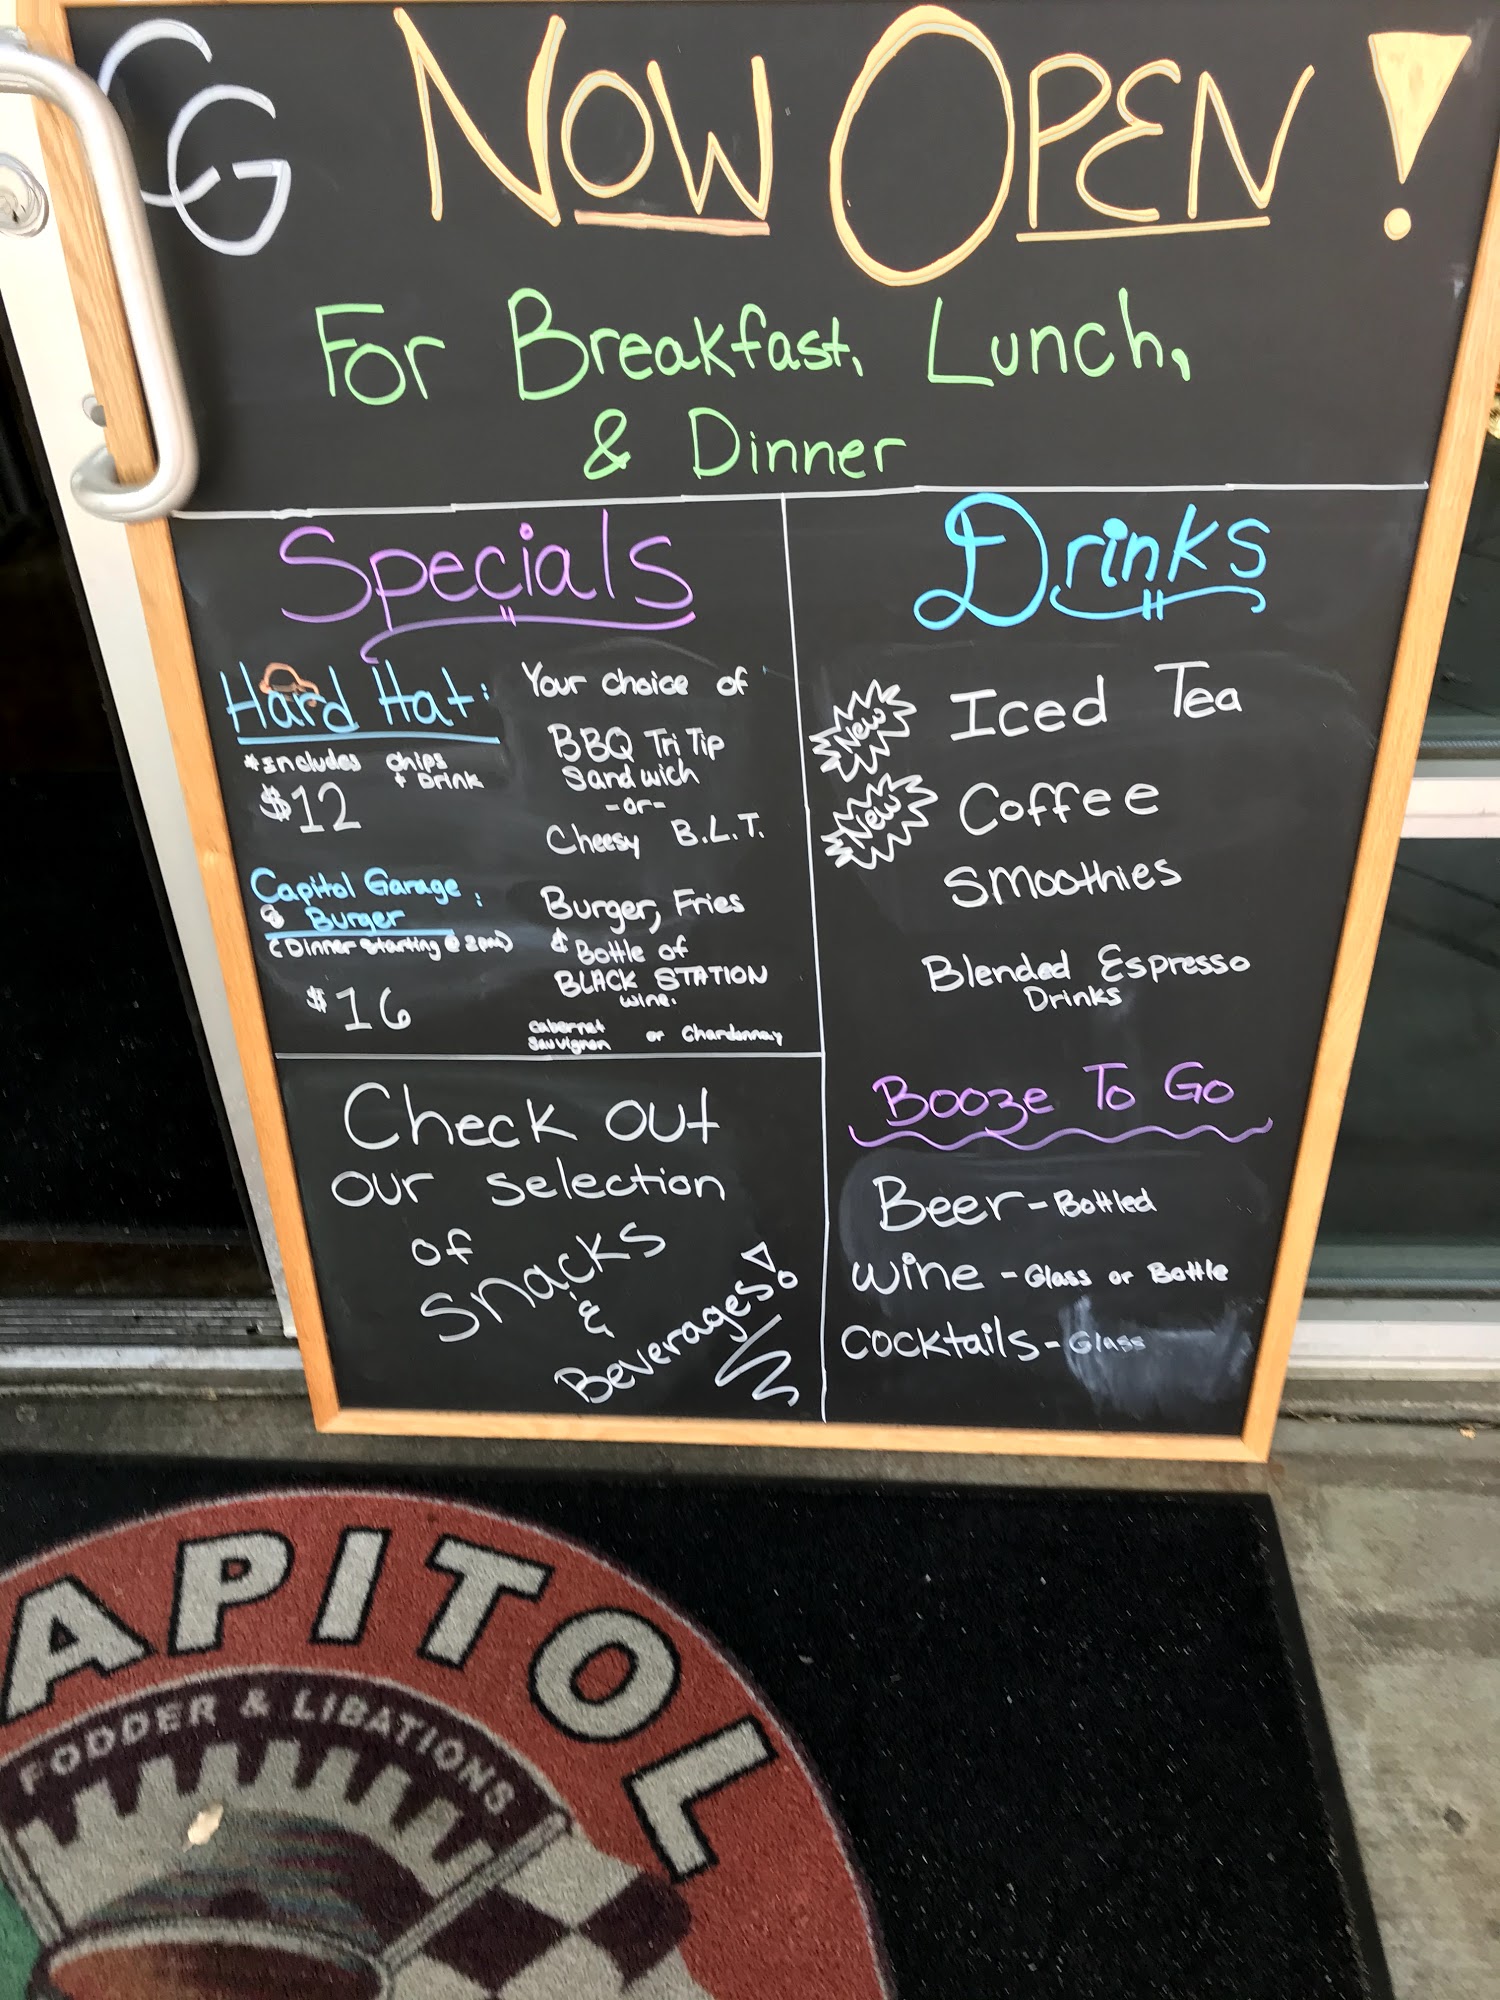 CG NOW OPEN!
For Breakfast, Lunch,
& Dinner
Specials
Hard Hat:
*Includes chips
+ Drink
$12
Your choice of
BBQ Tri Tip
Sandwich
-or-
Cheesy B.L.T.
Capitol Garage :
Burger
(Dinner starting @ 2pm)
$16
Burger, Fries
& Bottle of
BLACK STATION
wine.
Cabernet
Sauvignon or Chardonnay
Check out
our selection
of
Snacks
&
Beverages!
Drinks
New Iced Tea
New Coffee
Smoothies
Blended Espresso
Drinks
Booze To Go
Beer - Bottled
Wine - Glass or Bottle
Cocktails - Glass
APITOL
FODDER & LIBATIONS